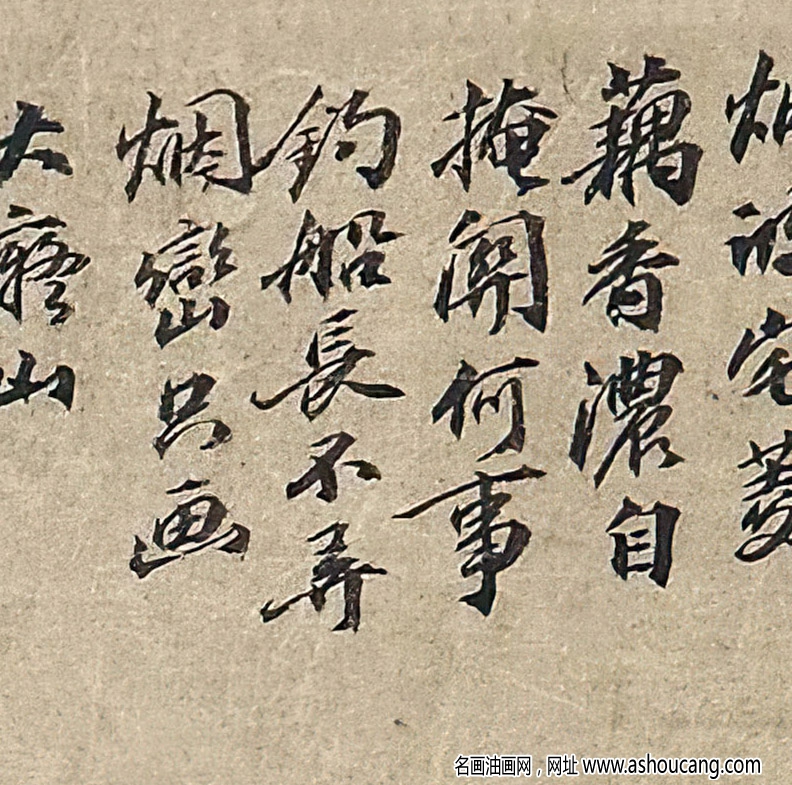 烟波宅菱
藕香濃自
掩關何事
釣船長不弄
烟巒只画
大癡山
名画油画网，网址 www.ashoucang.com